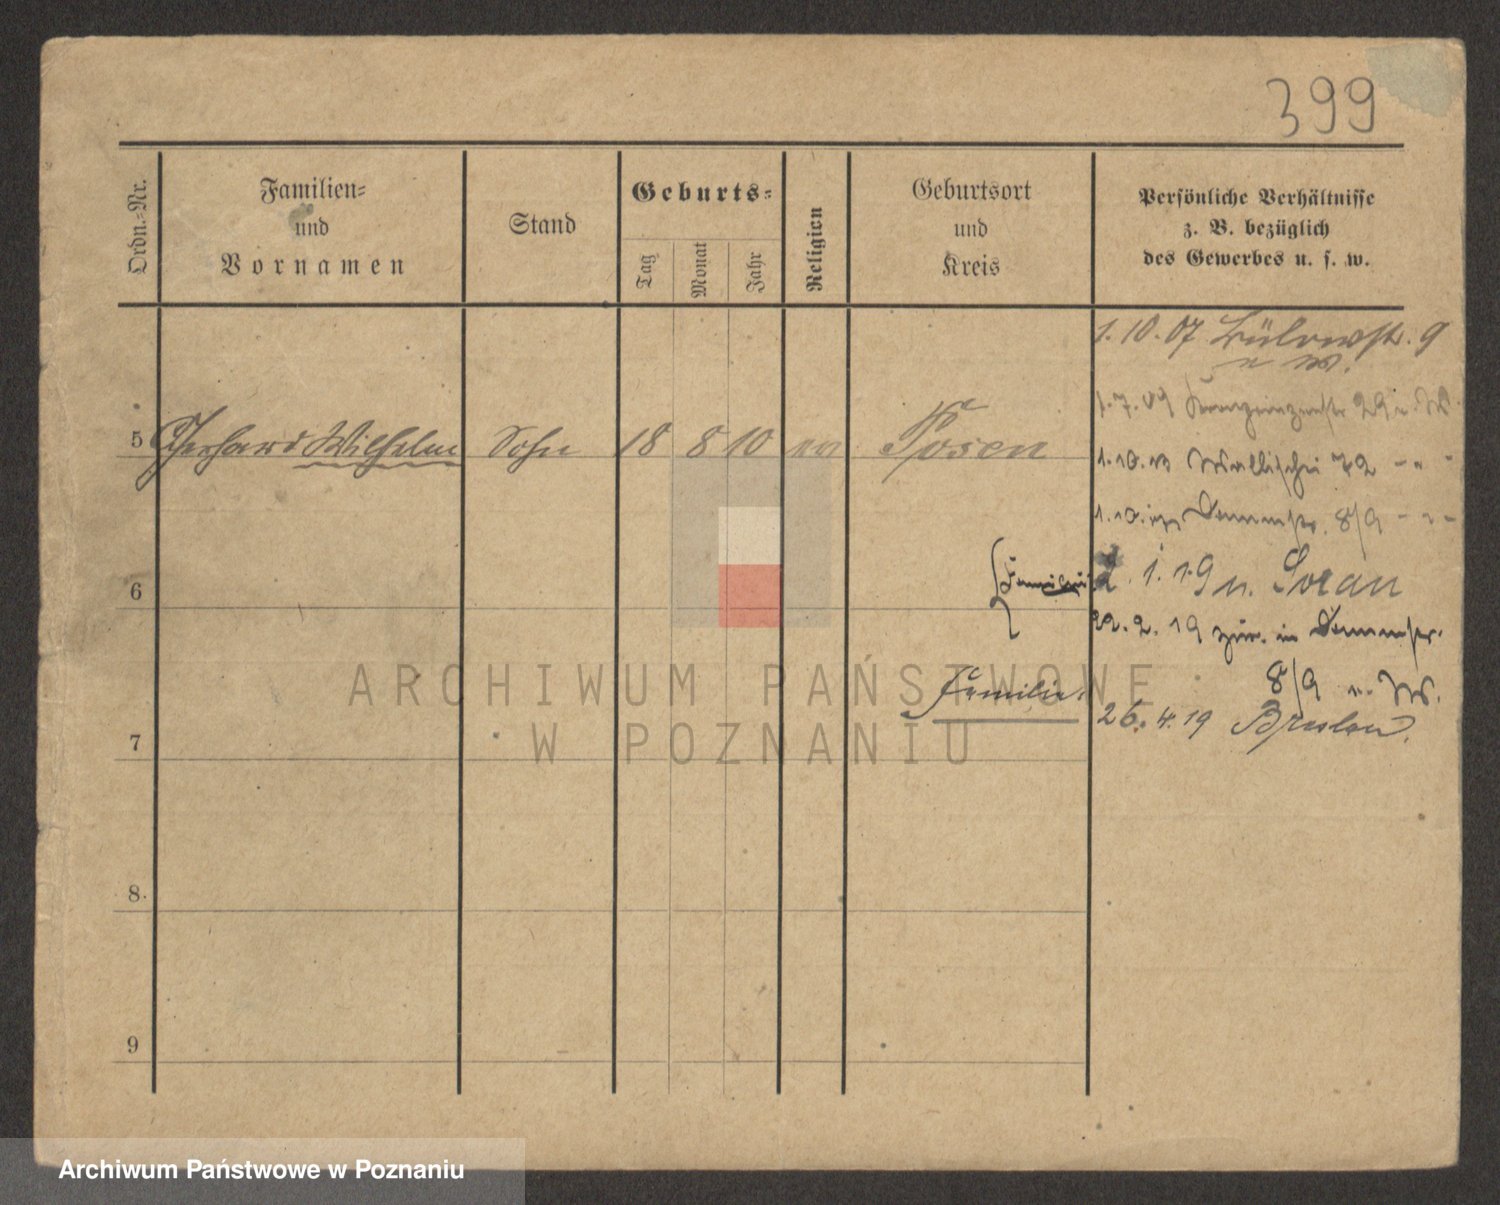 399
Ordn.-Nr.
Familien-
und
Vornamen
Stand
Geburts-
Tag
Monat
Jahr
Religion
Geburtsort
und
Kreis
Persönliche Verhältnisse
z. B. bezüglich
des Gewerbes u. s. w.
1.10.07 Bülowstr. 9
n W.
1.7.09 Kronprinzenstr 29 n W
5 Gerhard Wilhelm Sohn 18 8 10 Posen
1.10.13 Wallischei 72 - " -
1.10. Dammstr. 8/9 - " -
6
1.19 n. Soran
22.2.19 zur. in Dammstr.
8/9 n. W.
Familie
26.4.19 Breslau.
7
8.
9
ARCHIWUM PAŃSTWOWE
W POZNANIU
Archiwum Państwowe w Poznaniu